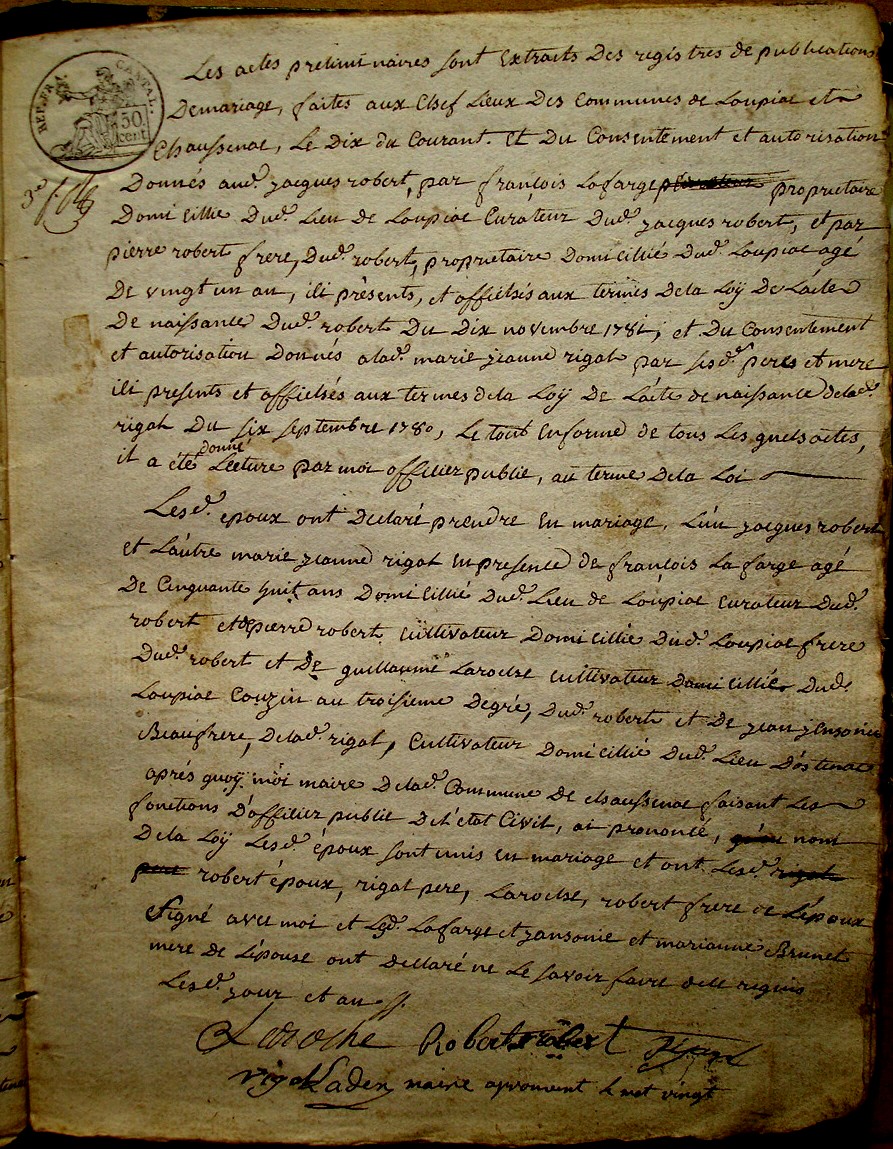 REP. FRA. CANTAL.
50 cent
3e
Les actes preliminaires sont Extraits Des registres de publications
De mariage, faites aux Chef Lieux Des Communes de Loupiac et
Chaussenac, Le Dix du Courant. Et Du Consentement et autorisation
Donnés aud. jacques robert, par françois Lafarge proprietaire
Domicillie Dud. Lieu De Loupiac Curateur Dud. jacques robert, et par
pierre robert frere, Dud. robert, proprietaire Domicillié Dud. Loupiac agé
De vingt un an, ici présents, et affichés aux termes De la Loÿ De Lacte
De naissance Dud. robert Du Dix novembre 1781; et Du Consentement
et autorisation Donnés a lad. marie jeanne rigal par sesd. peres et mere
ici presents et affichés aux termes de la Loÿ De Lácte de naissance de lad.
rigal Du six septembre 1780, Le tout En forme de tous Les quels actes,
il a été donné Lecture par moi officier public, aú terme De la Loi
Lesd. epoux ont Declaré prendre en mariage, Lún jacques robert
et Láutre marie jeanne rigal en presence de francois Lafarge agé
De Cinquante huit ans Domicillié Dud. Lieu de Loupiac curateur Dud.
robert et de pierre robert cultivateur Domicillie Dud. Loupiac frere
Dud. robert et De guillaume Laroche cultivateur Domicillié Dud.
Loupiac Couzin au troisieme Degré, Dud. robert et De jean jensonie
Beaufrere, De lad. rigal, Cultivateur Domicillié Dud. Lieu D'ostenac
aprés quoÿ moi maire De lad. Commune De chaussenac faisant Les
fonctions D'officier public De L'etat Civil, ai prononcé, qu'au nom
De la Loÿ Lesd. époux sont unis en mariage et ont Lesd. rigal
pere robert époux, rigal pere, Laroche, robert frere de L'époux
signé avec moi et Lesd. Lafarge et jansonie et marianne Brunet
mere de L'épouse ont declaré ne le savoir faire de ce requis
Lesd. jour et an
Laroche Robert robert
rigal Laden maire approuvent le mot vingt